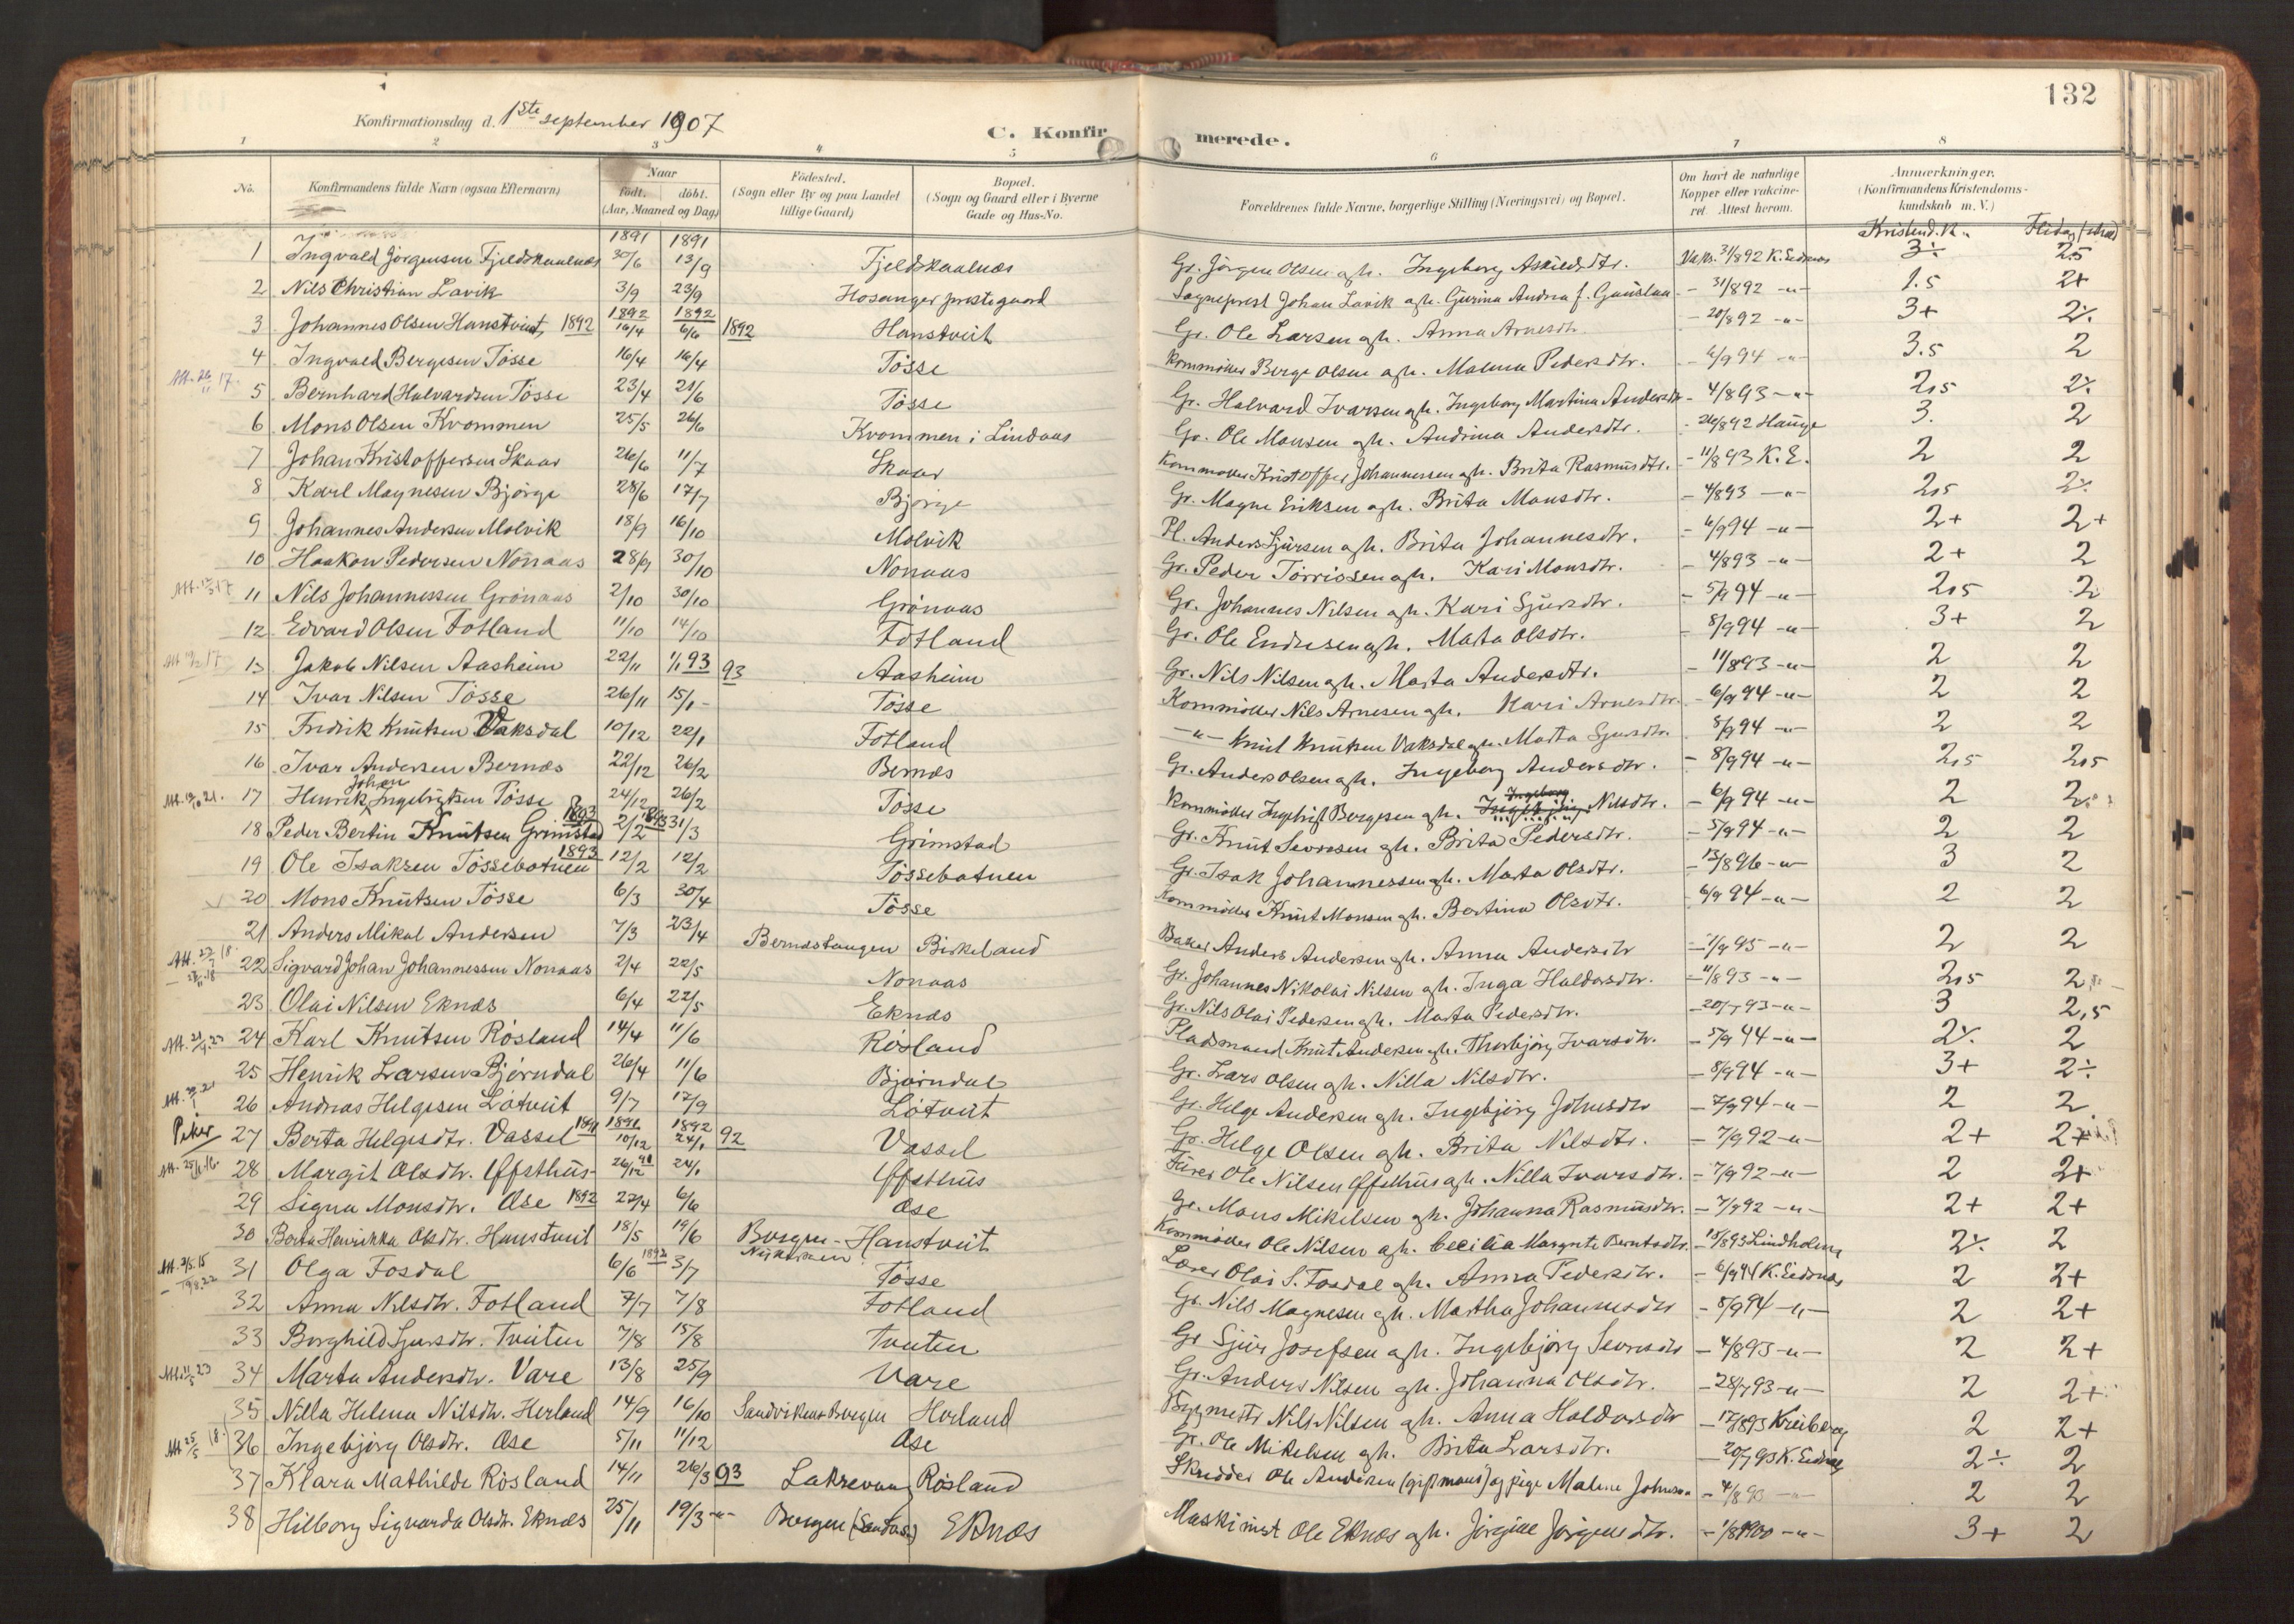 132
Konfirmationsdag d. 1ste september 1907
C. Konfirmerede.
1 2 3 4 5 6 7 8
No. Konfirmandens fulde Navn (ogsaa Efternavn) Naar født. døbt. (Aar, Maaned og Dag) Fødested. (Sogn eller By og paa Landet tillige Gaard) Bopæl. (Sogn og Gaard eller i Byerne Gade og Hus-No. Forældrenes fulde Navne, borgerlige Stilling (Næringsvei) og Bopæl. Om havt de naturlige Kopper eller vakcineret. Attest herom. Anmærkninger. (Konfirmandens Kristendomskundskab m. V.)
Kristend.k. Flid og
1891 1891
1 Ingvald Jørgensen Fjeldskaalnes 30/6 13/9 Fjeldskaalnæs Gr. Jørgen Olsen og h. Ingeborg Askildsdtr. 31/892 K. Eidsnes 3÷ 2,5
2 Nils Christian Lavik 3/9 23/9 Hosanger prestegaard Sogneprest Johan Lavik og h. 31/892 -"- 1.5 2+
1892 1892
3 Johannes Olsen Hanstveit, 1892 16/4 6/6 1892 Hanstveit Gr. Ole Larsen og h. Anna Arnesdtr. - 20/892 -"- 3+ 2÷
4 Ingvald Bergesen Tösse 16/4 16/4 Tösse Kornmöller Berge Olsen og h. Malena Pedersdtr. - 6/9 94 -"- 3.5 2
5 Bernhard Halvardsen Tösse 23/4 21/6 Tösse Gr. Halvard Ivarsen og h. Ingeborg Martina Andersdtr - 4/893 -"- 2,5 2÷
6 Mons Olsen Kvommen 25/5 26/6 Kvommen i Lindaas Gr. Ole Monsen og h. Andrina Andersdtr. - 26/892 Hauge 3. 2
7 Johan Kristoffersen Skaar 26/6 11/7 Skaar Kornmöller Kristoffer Johannessen og h. Brita Rasmusdtr. - 11/8 93 K. E. 2 2
8 Karl Magnesen Bjørge 28/6 17/7 Bjørge Gr. Magne Eriksen og h. Brita Monsdtr. - 4/893 -"- 2,5 2÷
9 Johannes Andersen Molvik 18/9 16/10 Molvik Pl. Anders Sjursen og h. Brita Johannesdtr. - 6/9 94 -"- 2+ 2+
10 Haakon Pedersen Nonaas 28/9 30/10 Nonaas Gr. Peder Tørrissen og h. Kari Monsdtr. - 4/893 -"- 2+ 2
11 Nils Johannessen Grønaas 2/10 30/10 Grønaas Gr. Johannes Nilsen og h. Kari Sjursdtr. - 5/9 94 -"- 2,5 2
12 Edvard Olsen Fotland 11/10 14/10 Fotland Gr. Ole Endresen og h. Marta Olsdtr. - 8/9 94 -"- 3+ 2
13 Jakob Nilsen Aasheim 22/11 1/1 93 93 Aasheim Gr. Nils Nilsen og h. Marta Andersdtr. - 11/893 -"- 2 2
14 Ivar Nilsen Tösse 26/11 15/1 - Tösse Kornmöller Nils Arnesen og h. Kari Arnesdtr. - 6/9 94 -"- 2 2
15 Fredrik Knutsen Vaksdal 10/12 22/1 Fotland -"- Knut Knutsen Vaksdal og h. Marta Sjursdtr. 8/9 94 -"- 2 2
16 Ivar Andersen Bernæs 22/12 26/2 Bernæs Gr. Anders Olsen og h. Ingeborg Andersdtr. - 8/9 94 -"- 2,5 2,5
17 Henrik Johan Ingebrigtsen Tösse 24/12 26/2 Tösse Kornmöller Ingebrigt Bergesen og h. Ingeborg Nilsdtr. - 6/9 94 -"- 2 2
18 Peder Bertin Knutsen Grimstad 1893 2/2 1893 31/3 Grimstad Gr. Knut Sevresen og h. Brita Pedersdtr. - 5/9 94 -"- 2 2
19 Ole Isaksen Tössebotnen 1893 12/2 12/2 Tössebotnen Gr. Isak Johannessen og h. Marta Olsdtr. - 13/896 -"- 3 2
20 Mons Knutsen Tösse 6/3 30/4 Tösse Kornmöller Knut Monsen og h. Bertina Olsdtr. - 6/9 94 -"- 2 2
21 Anders Mikal Andersen 7/3 23/4 Bernæstangen Birkeland Baker Anders Andersen og h. Anna Andersdtr - 7/9 95 -"- 2 2
22 Sigvard Johan Johannessen Nonaas 2/4 22/5 Nonaas Gr. Johannes Nikolai Nilsen og h. Inga Haldorsdtr. - 11/893 -"- 2,5 2
23 Olai Nilsen Eknæs 6/4 22/5 Eknæs Gr. Nils Olai Pedersen og h. Marta Pedersdtr. - 20/7 93 -"- 3 2,5
24 Karl Knutsen Røsland 14/4 11/6 Røsland Pladsmand Knut Andersen og h. Thorbjørg Ivarsdtr. - 5/9 94 -"- 2÷ 2
25 Henrik Larsen Bjørndal 26/4 11/6 Bjørndal Gr. Lars Olsen og h. Nilla Nilsdtr. - 8/9 94 -"- 3+ 2÷
26 Andreas Helgesen Løtveit 9/7 17/9 Løtveit Gr. Helge Andersen og h. Ingebjørg Johnsdtr - 7/9 94 -"- 2 2
Piker
27 Berta Helgesdtr. Vassel 1891 1891 10/12 1892 24/1 92 Vassel Gr. Helge Olsen og h. Brita Nilsdtr. - 7/9 92 -"- 2+ 2+
28 Margit Olsdtr. Øfsthus 26/12 91 24/1 Øfsthus Ole Nilsen Øfsthus og h. Nilla Ivarsdtr. - 7/9 92 -"- 2 2+
29 Signa Monsdtr. Øse 1892 27/4 6/6 Øse Gr. Mons Mikelsen og h. Johanna Rasmusdtr. - 7/9 92 -"- 2+ 2+
30 Berta Henrikka Olsdtr. Hanstveit 18/5 19/6 Bergen - Nykirken Hanstveit Kornmöller Ole Nilsen og h. Cecilia Margrete Berntsdtr. - 18/893 Lindholm 2÷ 2
31 Olga Fosdal 6/6 1892 3/7 Tösse Lærer Olai S. Fosdal og h. Anna Pedersdtr. - 6/9 94 K. Eidsnes 2 2+
32 Anna Nilsdtr. Fotland 7/7 7/8 Fotland Gr. Nils Magnesen og h. Martha Johannesdtr - 8/9 94 -"- 2 2+
33 Borghild Sjursdtr. Tveiten 7/8 15/8 Tveiten Gr Sjur Josefsen og h. Ingebjørg Sevresdtr - 4/893 -"- 2 2+
34 Marta Andersdtr. Vare 13/8 25/9 Vare Gr. Anders Nilsen og h. Johanna Olsdtr. - 28/7 93 -"- 2 2+
35 Nilla Helena Nilsdtr. Herland 14/9 16/10 Sandviken Bergen Herland Bygmestr Nils Nilsen og h. Anna Haldorsdtr - 17/893 Kreiberg 2 2+
36 Ingebjørg Olsdtr. Øse 5/11 11/12 Øse Gr. Ole Mikelsen og h. Brita Larsdtr. - 20/7 93 K. Eidsnes 2÷ 2
37 Klara Mathilde Røsland 14/11 26/3 93 Laksevaag Røsland Skrædder Ole Andersen (gift mand) og pige Malene Johnsen - 4/8 93 -"- 2 2
38 Hilborg Sigvarda Olsdr. Eknæs 25/11 19/3 -"- Bergen Eknæs Maskinist Ole Eknæs og h. Jørgine Jørgensdtr. - 1/8 1900 -"- 3+ 2